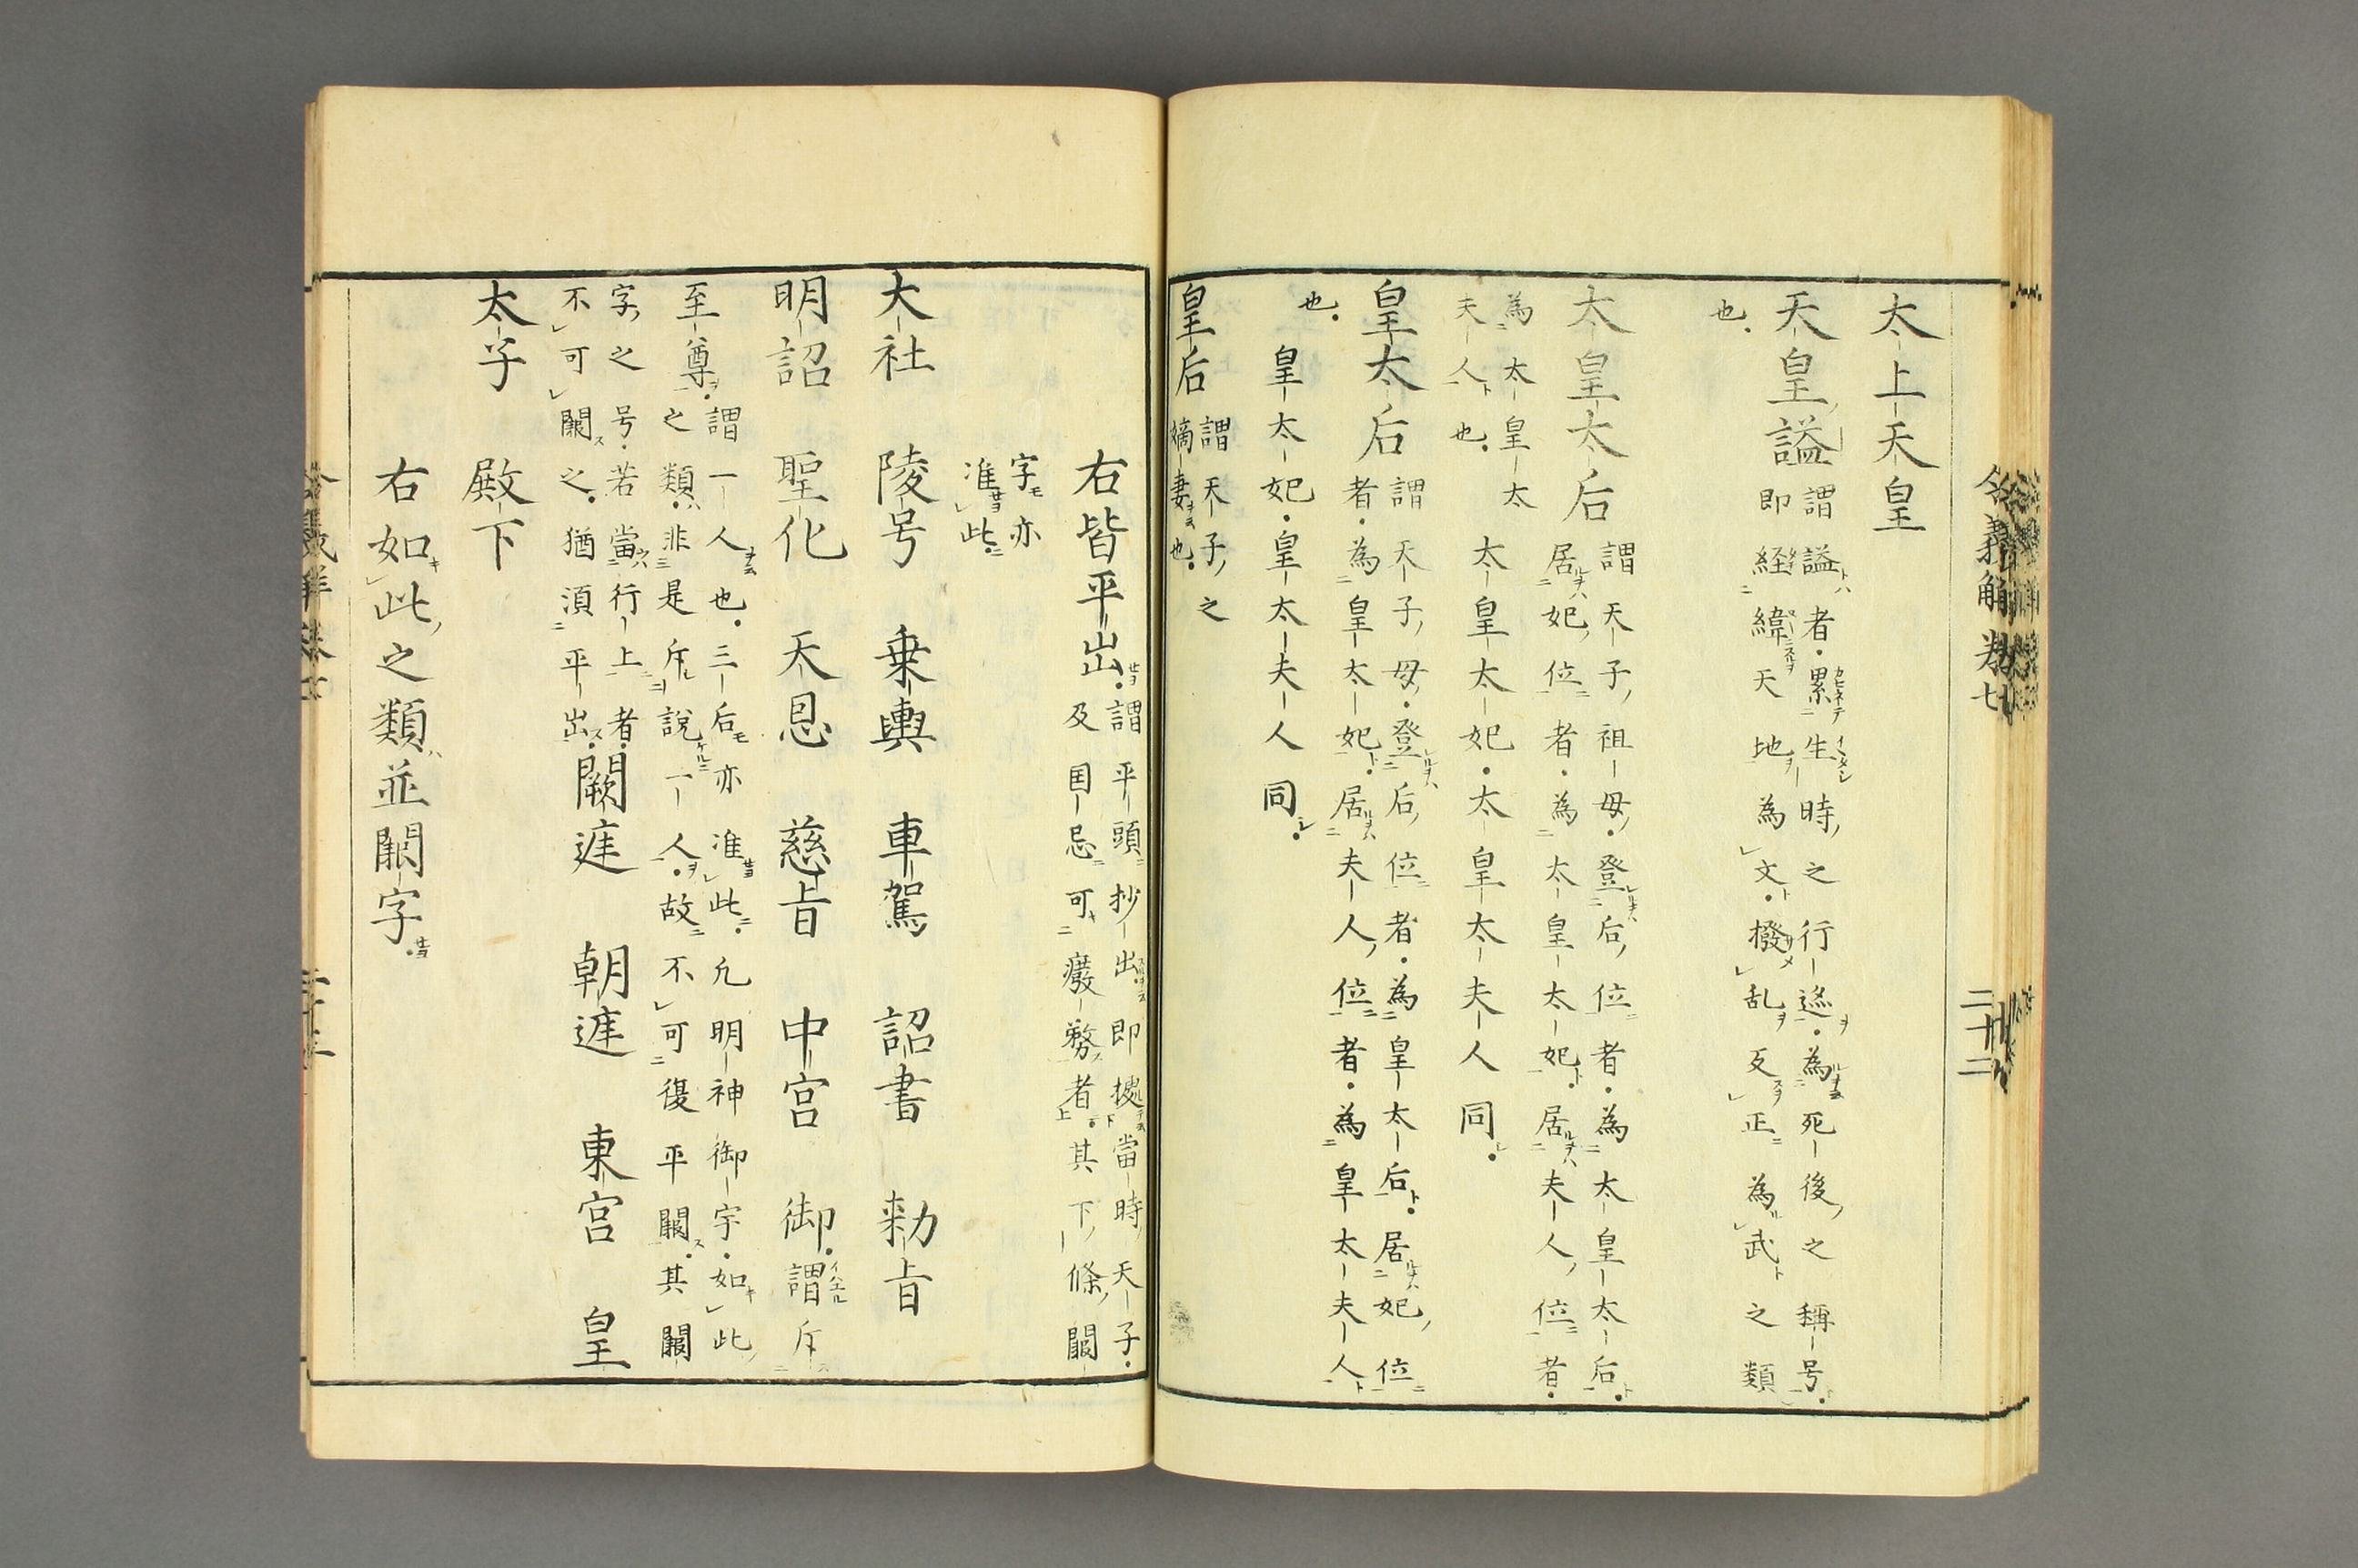 太上天皇
天皇諡
謂諡者累生時之行迹為死後之稱号
即経緯天地為文撥乱反正為武之類
也
太皇太后
謂天子祖母登后位者為太皇太后
居妃位者為太皇太妃居夫人位者
為太皇太
夫人也
太皇太妃太皇太夫人同
皇太后
謂天子母登后位者為皇太后居妃位
者為皇太妃居夫人位者為皇太夫人
也
皇太妃皇太夫人同
皇后
謂天子之
嫡妻也
令義解巻七
二十二
右皆平出
謂平頭抄出即據當時天子
及国忌可癈務者其下條闕
字亦
准此
大社 陵号 乗輿 車駕 詔書 勅旨
明詔 聖化 天恩 慈旨 中宮 御謂斥
至尊
謂一人也三后亦准此凡明神御宇如此
之類非是斥說一人故不可復平闕其闕
字之号若當行上者
不可闕之猶須平出
闕遅 朝遅 東宮 皇
太子 殿下
右如此之類並闕字